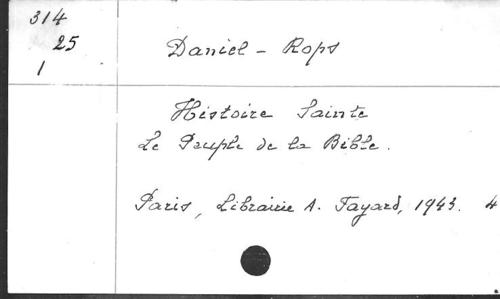 314
25
1
Daniel - Rops
Histoire Sainte
Le Peuple de la Bible.
Paris, Librairie A. Fayard, 1943. 4